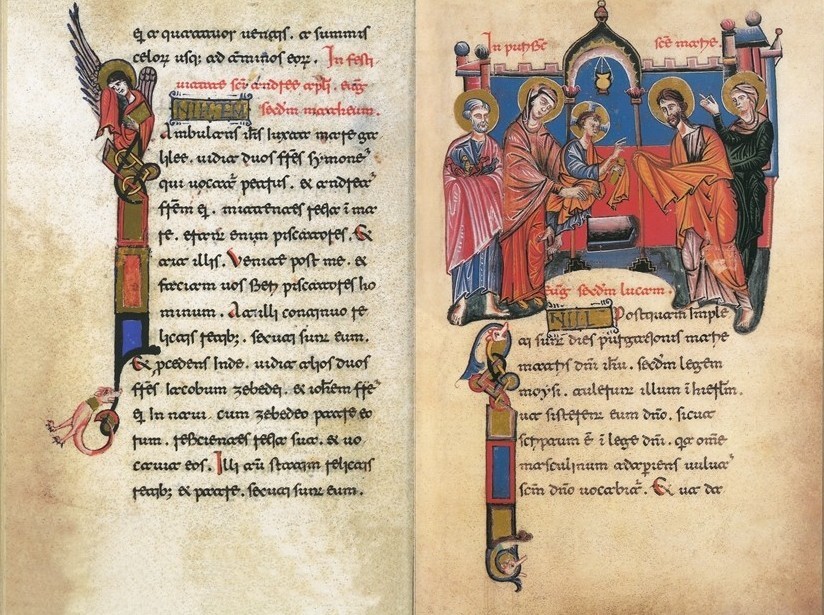 ei a quattuor ventis. a summis
celor usq; ad tminos eor. In festi
vitate sci andree apli. evg
secdm mattheum.
Ambulans ihs iuxta mare ga
lilee. vidit duos ffes symone
qui vocat petrus. et andrea
ffem ei. mittentes rethia i ma
re. erant enim piscatores. Et
ait illis. Venite post me. et
faciam vos fieri piscatores ho
minum. At illi continuo re
lictis retib; secuti sunt eum.
Et pcedens inde. vidit alios duos
ffes iacobum zebedei. et iohem ffe
ei in navi. cum zebedeo patre eo
rum. reficientes retia sua. et vo
cavit eos. Illi aut statim relictis
retib; et patre. secuti sunt eum.
In sce marie.
Evg secdm lucam.
Postquam imple
ti sunt dies purgationis marie
matris dni ihu. secdm legem
moysi. tulerunt illum i hierlm.
ut sisterent eum dno. sicut
scriptum e i lege dni. qa ome
masculinum adaperiens vulva
scm dno vocabit. Et ut da